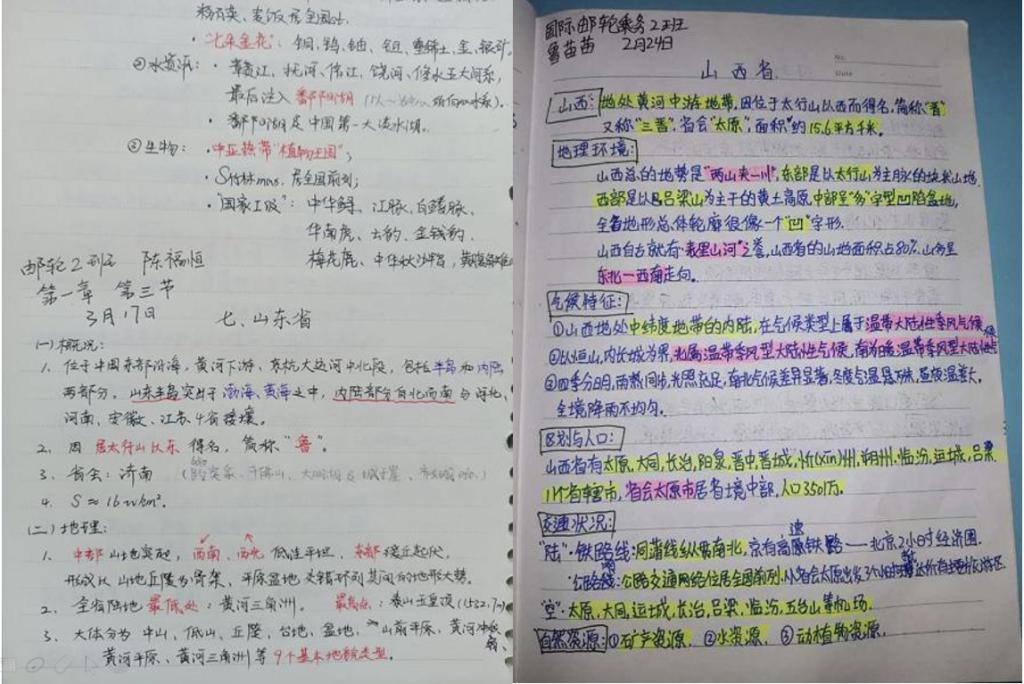 杨梅类、麦饭居全国 .
·"七朵金花": 铜、钨、铀、钽、重稀土、金、银矿。
②水资源: · 章贡江、抚河、信江、饶河、修水五大河系,
最后注入 鄱阳湖
· 鄱阳湖是中国第一大淡水湖。
③生物: ·中亚热带"植物王国";
· S竹林max. 居全国前列;
·"国家Ⅰ级": 中华鲟、江豚、白鳍豚、
华南虎、云豹、金钱豹、
梅花鹿、中华秋沙鸭,
邮轮2班 陈福恒
第一章 第三节
3月17日 七、山东省
(一)概况:
1. 位于中国东部沿海,黄河下游、京杭大运河中北段,包括半岛和内陆
两部分。山东半岛突出于渤海、黄海之中,内陆部分自北而南与河北、
河南、安徽、江苏4省接壤。
2. 因 居太行山以东 得名,简称"鲁"。
3. 省会:济南 (趵突泉、千佛山、大明湖
4. S≈16w km²。
(二)地理:
1. 中部山地突起,西南、西北 低洼平坦,东部缓丘起伏,
形成以山地丘陵为骨架、平原盆地交错环列其间的地形大势。
2. 全省陆地最低处:黄河三角洲。 最高点:泰山玉皇顶(1532.7m)
3. 大体分为 中山、低山、丘陵、台地、盆地、山前平原、黄河冲积扇、
黄河平原、黄河三角洲等9个基本地貌类型。
国际邮轮乘务2班
鲁苗苗 2月24日
No.
Date
山西省
山西: 地处黄河中游地带,因位于太行山以西而得名,简称"晋"
又称"三晋",省会"太原",面积约15.6平方千米。
地理环境:
山西省的地势是"两山夹一川",东部是以太行山为主脉的块状山地,
西部是以吕梁山为主干的黄土高原,中部呈"多"字型凹陷盆地,
全省地形总体轮廓很像一个"凹"字形.
山西自古就有"表里山河"之誉,山西省的山地面积占80%.山多呈
东北一西南走向。
气候特征:
①山西地处中纬度地带的内陆,在气候类型上属于温带大陆性季风气候
②以恒山,内长城为界,北属温带季风型大陆性气候,南为暖温带季风型大陆性气候
③四季分明,雨热同步,光照充足,南北气候差异显著,冬夏气温悬殊,昼夜温差大,
全境降雨不均匀.
区划与人口:
山西省有太原,大同,长治,阳泉,晋中,晋城,忻(xin)州,朔州,临汾,运城,吕梁
11个省辖市,省会太原市居省境中部,人口3501万。
交通状况:
"陆"·铁路线:同蒲线纵贯南北,京有高速铁路——北京2小时经济圈.
·公路线:公路交通网络位居全国前列.从省会太原出发3小时可达所有
"空"·太原,大同,运城,长治,吕梁,临汾,五台山等机场.
自然资源:①矿产资源. ②水资源. ③动植物资源.